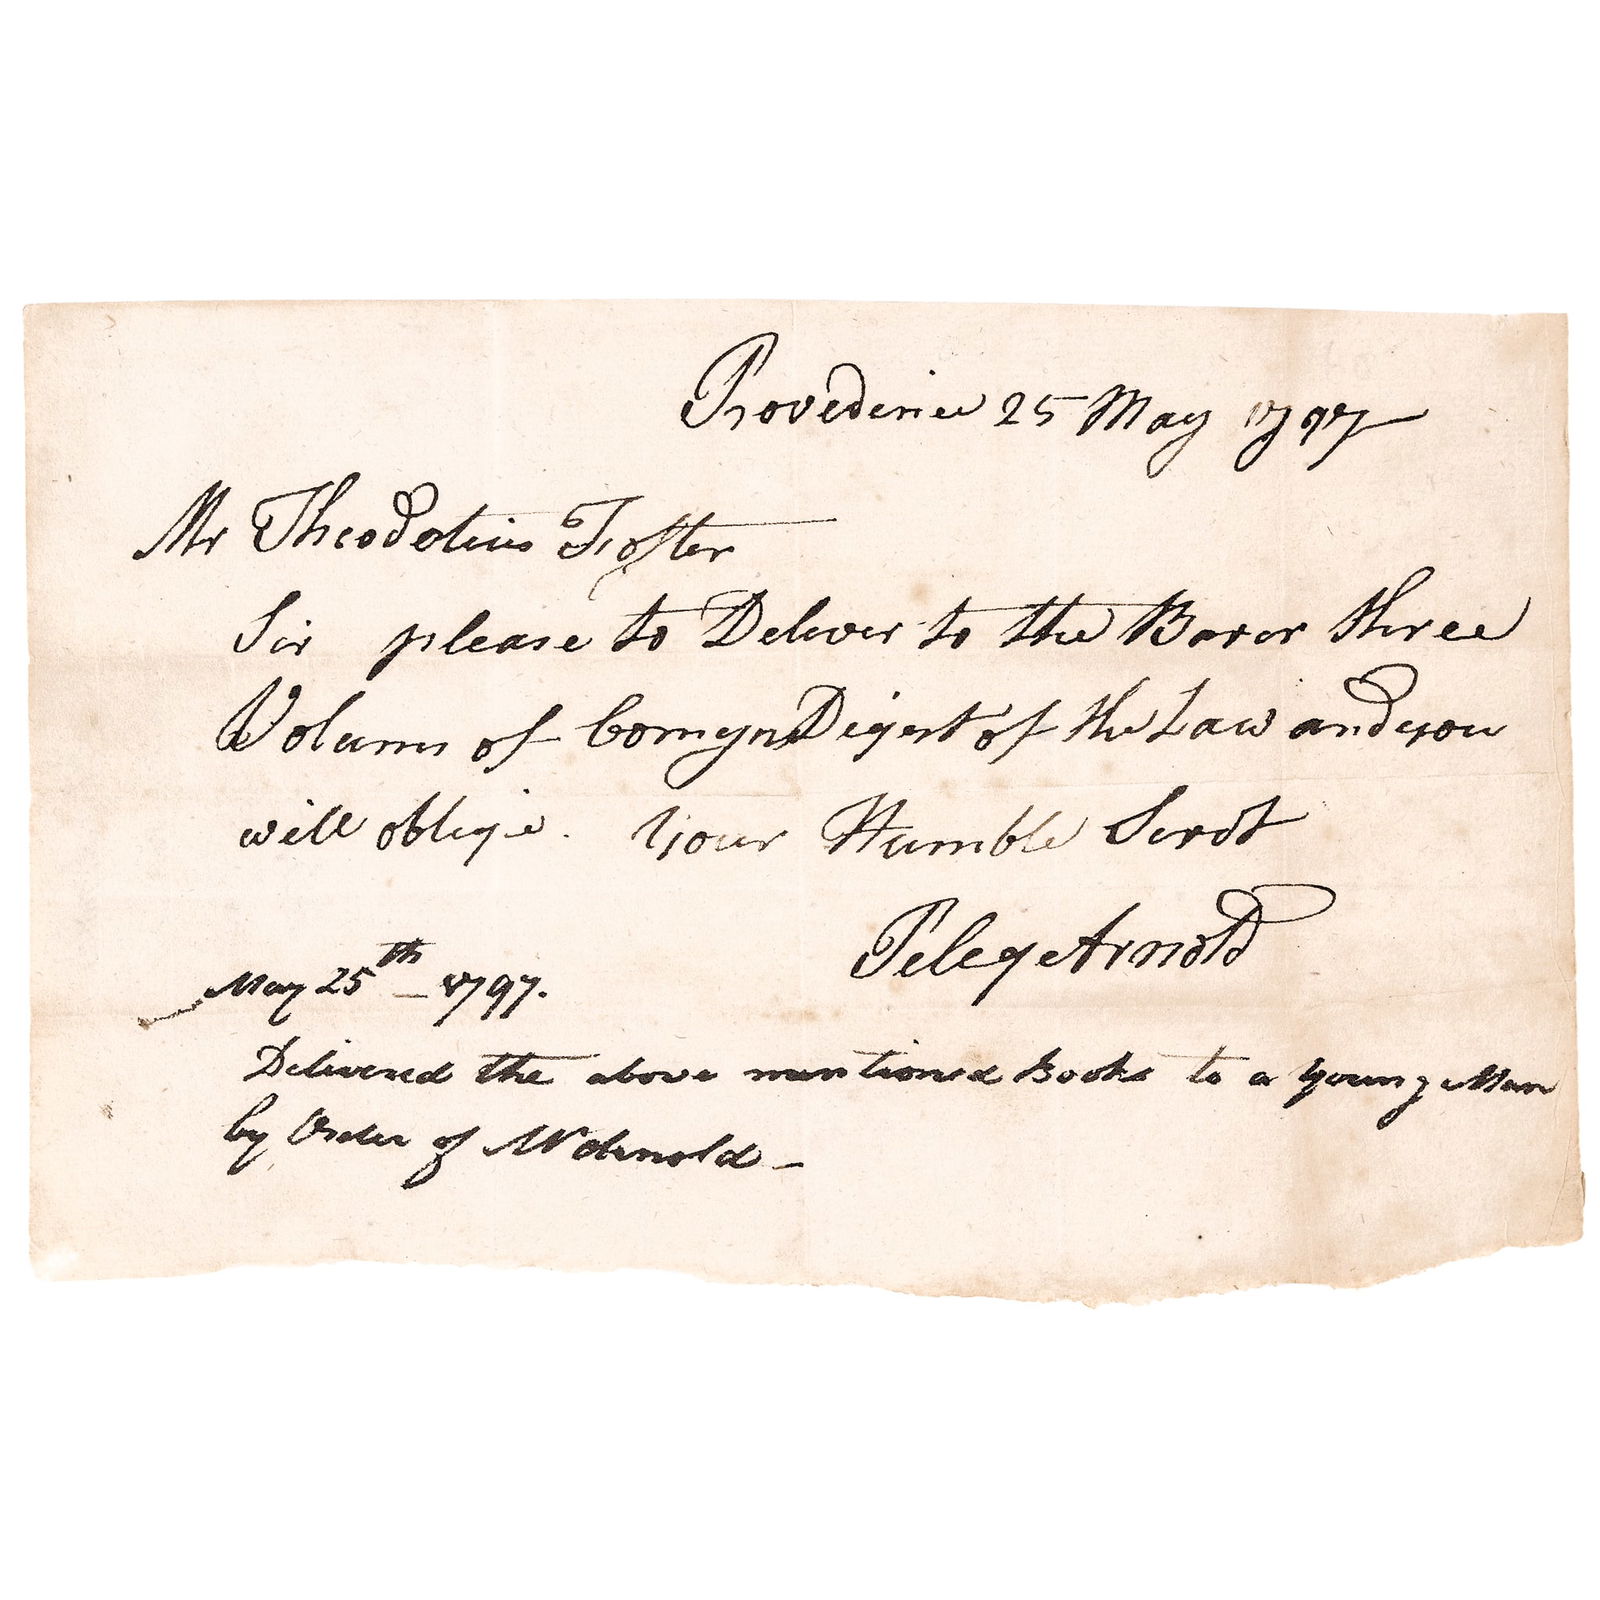 Providence 25 May 1797
Mr Theodotius Foster
Sir please to Deliver to the Barer three
Volums of Comyns Digest of the Law and you
will oblige. Your Humble Servt
Peleg Arnold
May 25th - 1797.
Delivered the above mentioned Books to a young Man
by Order of Mr Arnold -